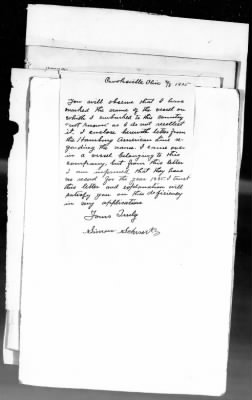 Brooksville Ohio 9/3 1925
You will observe that I have
marked the name of the vessel on
which I embarked to this country
"not known" as I do not recollect
it. I enclose herewith letter from
the Hamburg American Line re-
garding the name. I came over
in a vessel belonging to this
company, but from this letter
I am informed that they have
no record for the year 1885. I trust
this letter and explanation will
satisfy you on this deficiency
in my application
Yours Truly
Simon Schwartz